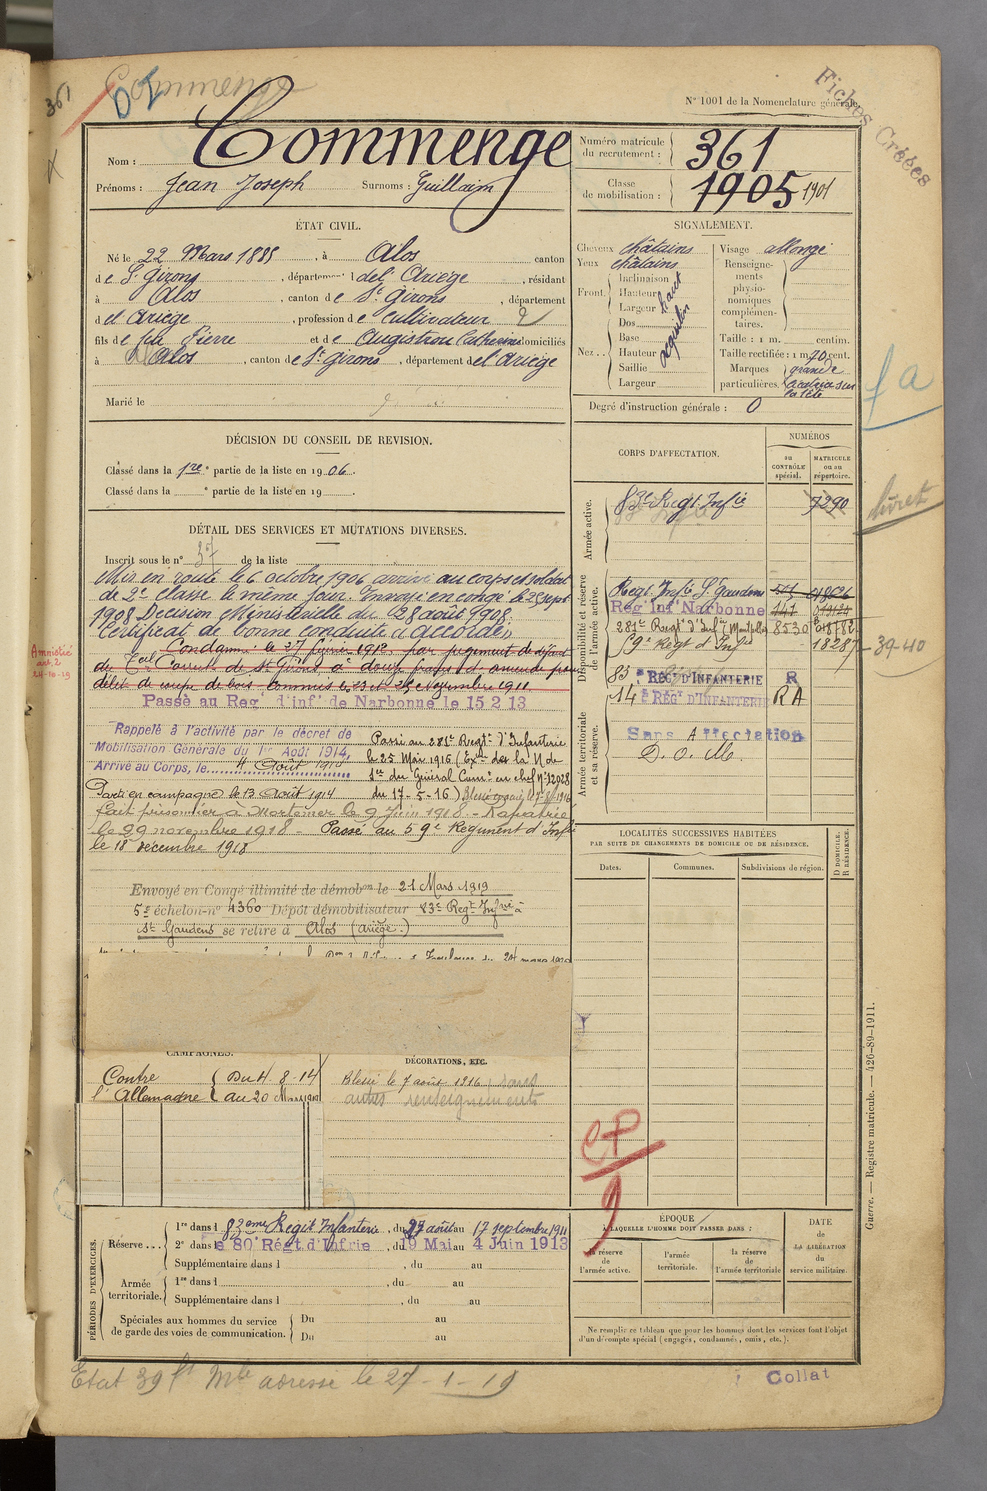 361
Commenge
N° 1001 de la Nomenclature générale.
Fiches Créées
Nom : Commenge
Prénoms : Jean Joseph Surnoms : Guillaim
Numéro matricule du recrutement : 361
Classe de mobilisation : 1905 1901
ÉTAT CIVIL.
Né le 22 Mars 1885, à Alos canton
de St Girons, département de l'Ariège, résidant
à Alos, canton de St Girons, département
d el Ariège, profession de cultivateur
fils de feu Pierre et de Augistrou Catherine domiciliés
à Alos, canton de St Girons, département de l'Ariège
Marié le
SIGNALEMENT.
Cheveux châtains
Yeux châtains
Front. Inclinaison
Hauteur haut
Largeur
Nez... Dos
Base
Hauteur
Saillie
Largeur
aquilin
Visage allongé
Renseignements physionomiques complémentaires.
Taille : 1 m. centim.
Taille rectifiée : 1 m 70 cent.
Marques particulières. grande cicatrice sur la tête
Degré d'instruction générale : 0
fa
DÉCISION DU CONSEIL DE REVISION.
Classé dans la 1re partie de la liste en 1906.
Classé dans la ° partie de la liste en 19 .
DÉTAIL DES SERVICES ET MUTATIONS DIVERSES.
Inscrit sous le n° 37 de la liste
Mis en route le 6 octobre 1906 arrivé au corps et soldat
de 2e classe le même jour. Envoyé en congé le 25 sept
1908 Décision Ministérielle du 28 août 1908.
Certificat de bonne conduite "accordé"
Condamné le 27 février 1912, par jugement de défaut
du Tal Correct. de St Girons, à douze francs d'amende pour
délit de coupe de bois, commis les 23 et 25 Novembre 1911.
Amnistié art. 2 24-10-19
Passé au Reg. d'inf. de Narbonne le 15 2 13
Rappelé à l'activité par le décret de
Mobilisation Générale du 1er Août 1914,
Arrivé au Corps, le 4 Août 1914
Passé au 281e Regt d'Infanterie
le 25 Mai 1916 (Exon de la N de
Sce du Général Comt en chef n° 12028
du 17-5-16) Blessé
Parti en campagne le 13 Août 1914
fait prisonnier à Mortemer le 9 Juin 1918 - Rapatrié
le 29 novembre 1918 - Passé au 59e Régiment d'Infie
le 18 décembre 1918
Envoyé en Congé illimité de démobon le 21 Mars 1919
5e échelon-n° 4360 Dépôt démobilisateur 83e Regt Infrie à
St Gaudens se retire à Alos (Ariège.)
CORPS D'AFFECTATION.
NUMÉROS
au CONTRÔLE spécial.
MATRICULE ou au répertoire.
Armée active.
83e Regt Infie 7290
livret
Disponibilité et réserve de l'armée active.
Regt Infie St Gaudens
Reg. Inf. Narbonne 141
281e Regt d'Infie Montpellier 8530
59e Regt d'Infie 18287
39-40
Armée territoriale et sa réserve.
83e RÉGt D'INFANTERIE R
14e RÉGt D'INFANTERIE RA
Sans Affectation
D. O. M.
LOCALITÉS SUCCESSIVES HABITÉES
PAR SUITE DE CHANGEMENTS DE DOMICILE OU DE RÉSIDENCE.
Dates. Communes. Subdivisions de région.
D DOMICILE. R RÉSIDENCE.
CAMPAGNES.
Contre l'Allemagne
Du 4. 8-14
au 20 Mars 1919
DÉCORATIONS, ETC.
Blessé le 7 août 1916 sans
autres renseignements
CP
9
PÉRIODES D'EXERCICES.
Réserve...
1re dans l 83eme Régit Infanterie, du 27 août au 17 septembre 1911
2e dans l e 80e Régt. d'Infrie, du 19 Mai au 4 Juin 1913
Supplémentaire dans l , du au
Armée territoriale.
1re dans l , du au
Supplémentaire dans l , du au
Spéciales aux hommes du service de garde des voies de communication.
Du au
Du au
ÉPOQUE
À LAQUELLE L'HOMME DOIT PASSER DANS :
la réserve de l'armée active.
l'armée territoriale.
la réserve de l'armée territoriale
DATE de LA LIBÉRATION du service militaire.
Ne remplir ce tableau que pour les hommes dont les services font l'objet
d'un décompte spécial (engagés, condamnés, omis, etc.).
Guerre. — Registre matricule. — 426-89-1911.
Etat 39 Mle adresse le 27-1-19
Collat